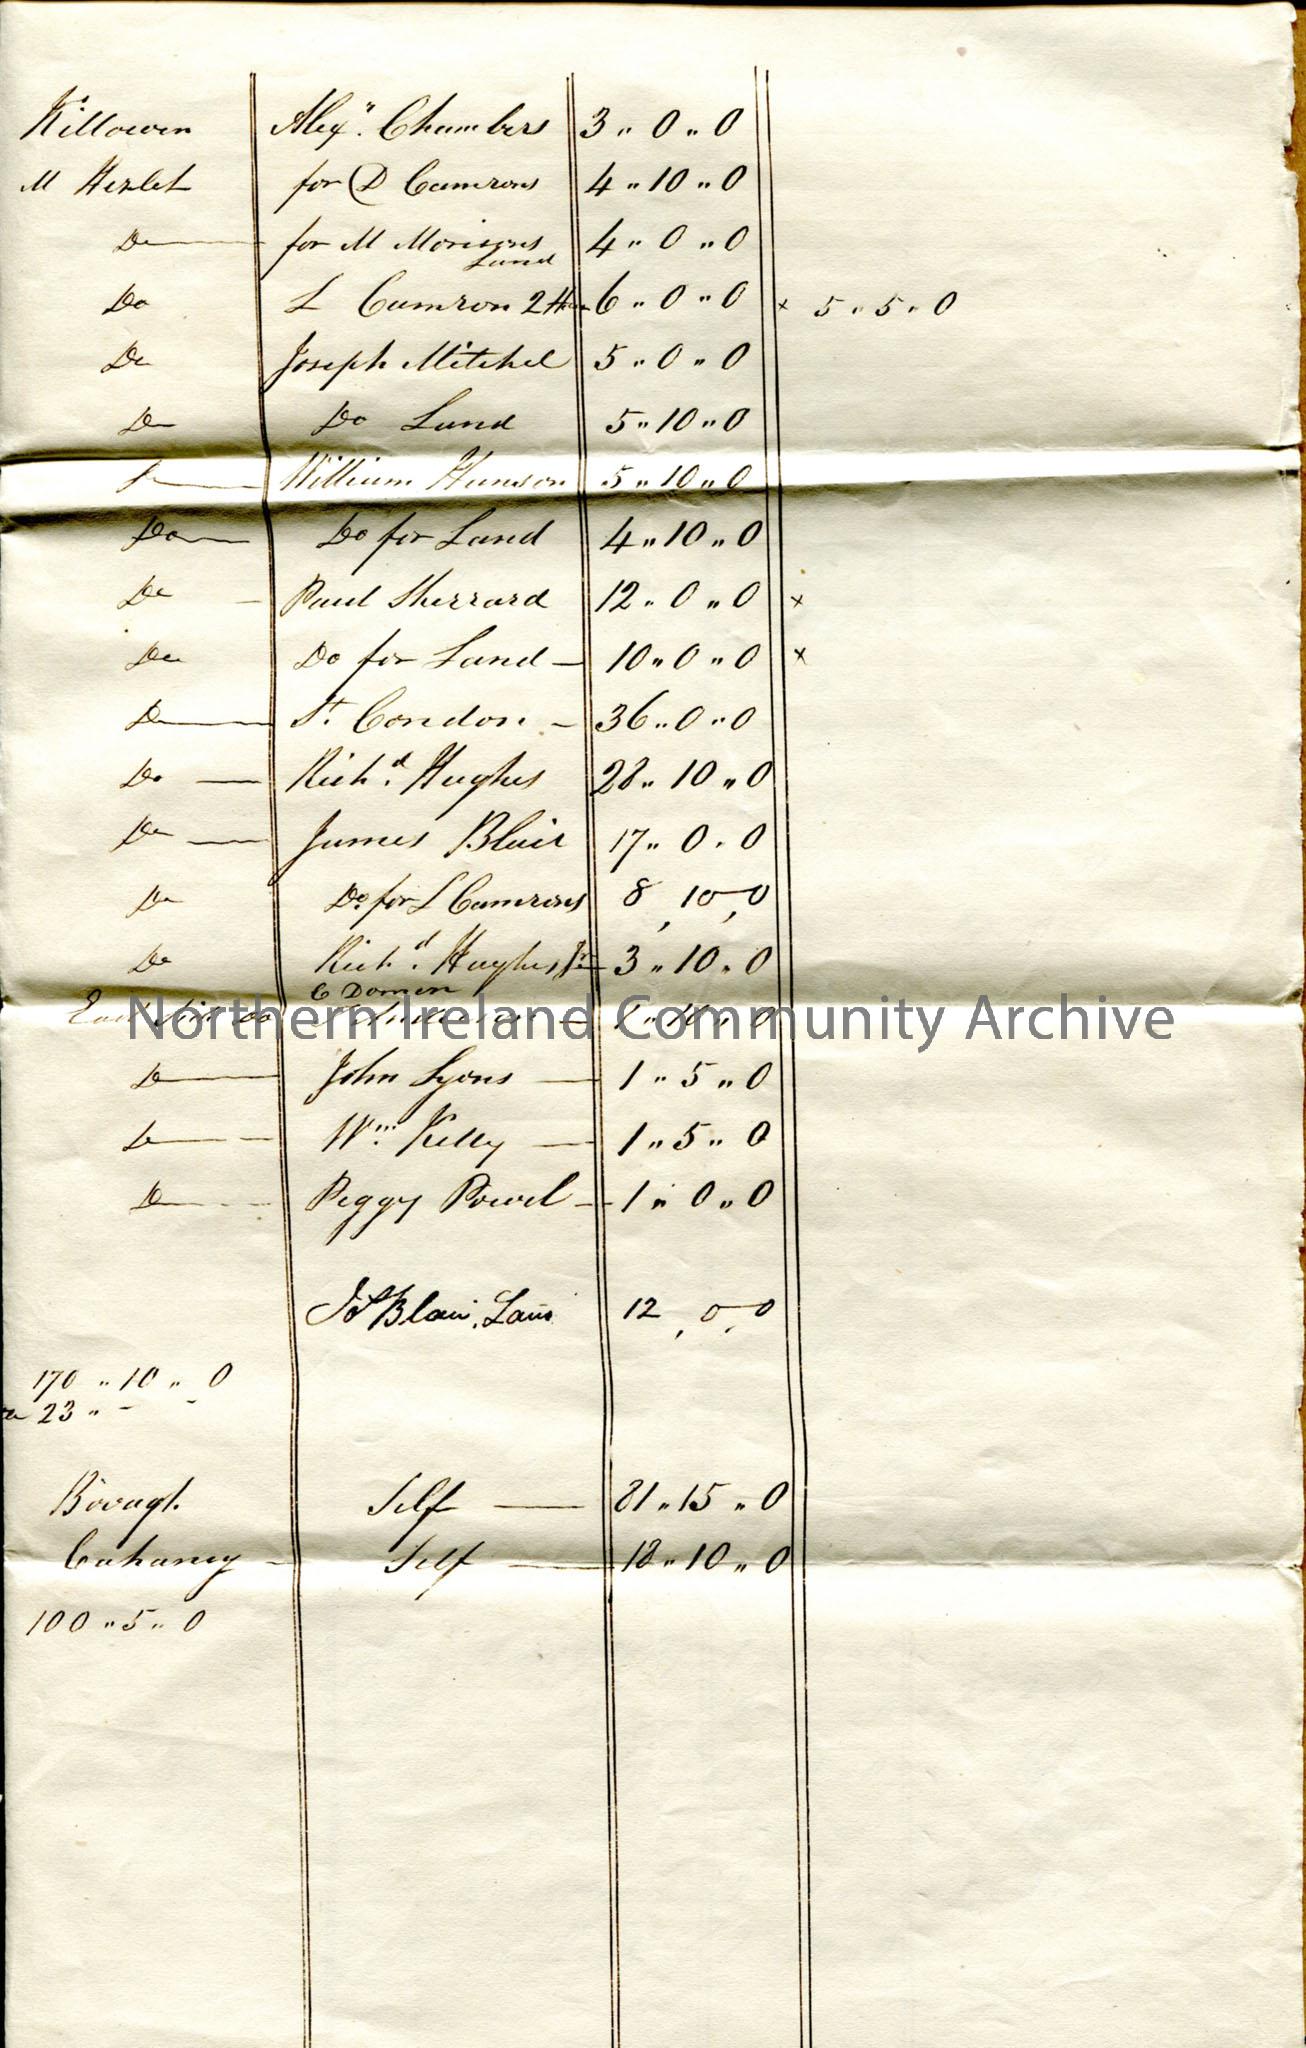 Killowen Alexr. Chambers 3 " 0 " 0
M Hezlet for D Camrons 4 " 10 " 0
Do for M Morisons Land 4 " 0 " 0
Do L Camron 2 6 " 0 " 0 x 5 " 5 " 0
Do Joseph Mitchel 5 " 0 " 0
Do Do Land 5 " 10 " 0
Do William Hunson 5 " 10 " 0
Do Do for Land 4 " 10 " 0
Do Paul Sherrard 12 " 0 " 0 x
Do Do for Land 10 " 0 " 0 x
Do St. Condon 36 " 0 " 0
Do Richd. Hughes 28 " 10 " 0
Do James Blair 17 " 0 " 0
Do Do for L Camrons 8 , 10 , 0
Do Richd. Hughes Jr 3 " 10 " 0
C Domen
Do 1 " 10 " 0
Do John Lyons 1 " 5 " 0
Do Wm. Kelly 1 " 5 " 0
Do Peggy Powel 1 " 0 " 0
Js Blair, Land 12 , 0 , 0
170 " 10 " 0
23 " - -
Bovagh Self 81 " 15 " 0
Cahaney Self 18 " 10 " 0
100 " 5 " 0
Northern Ireland Community Archive